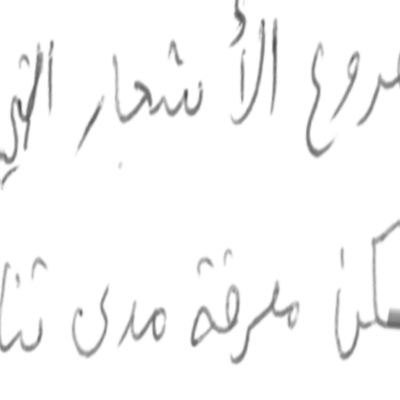 الأشجار التي
كن معرفة مدى تنا